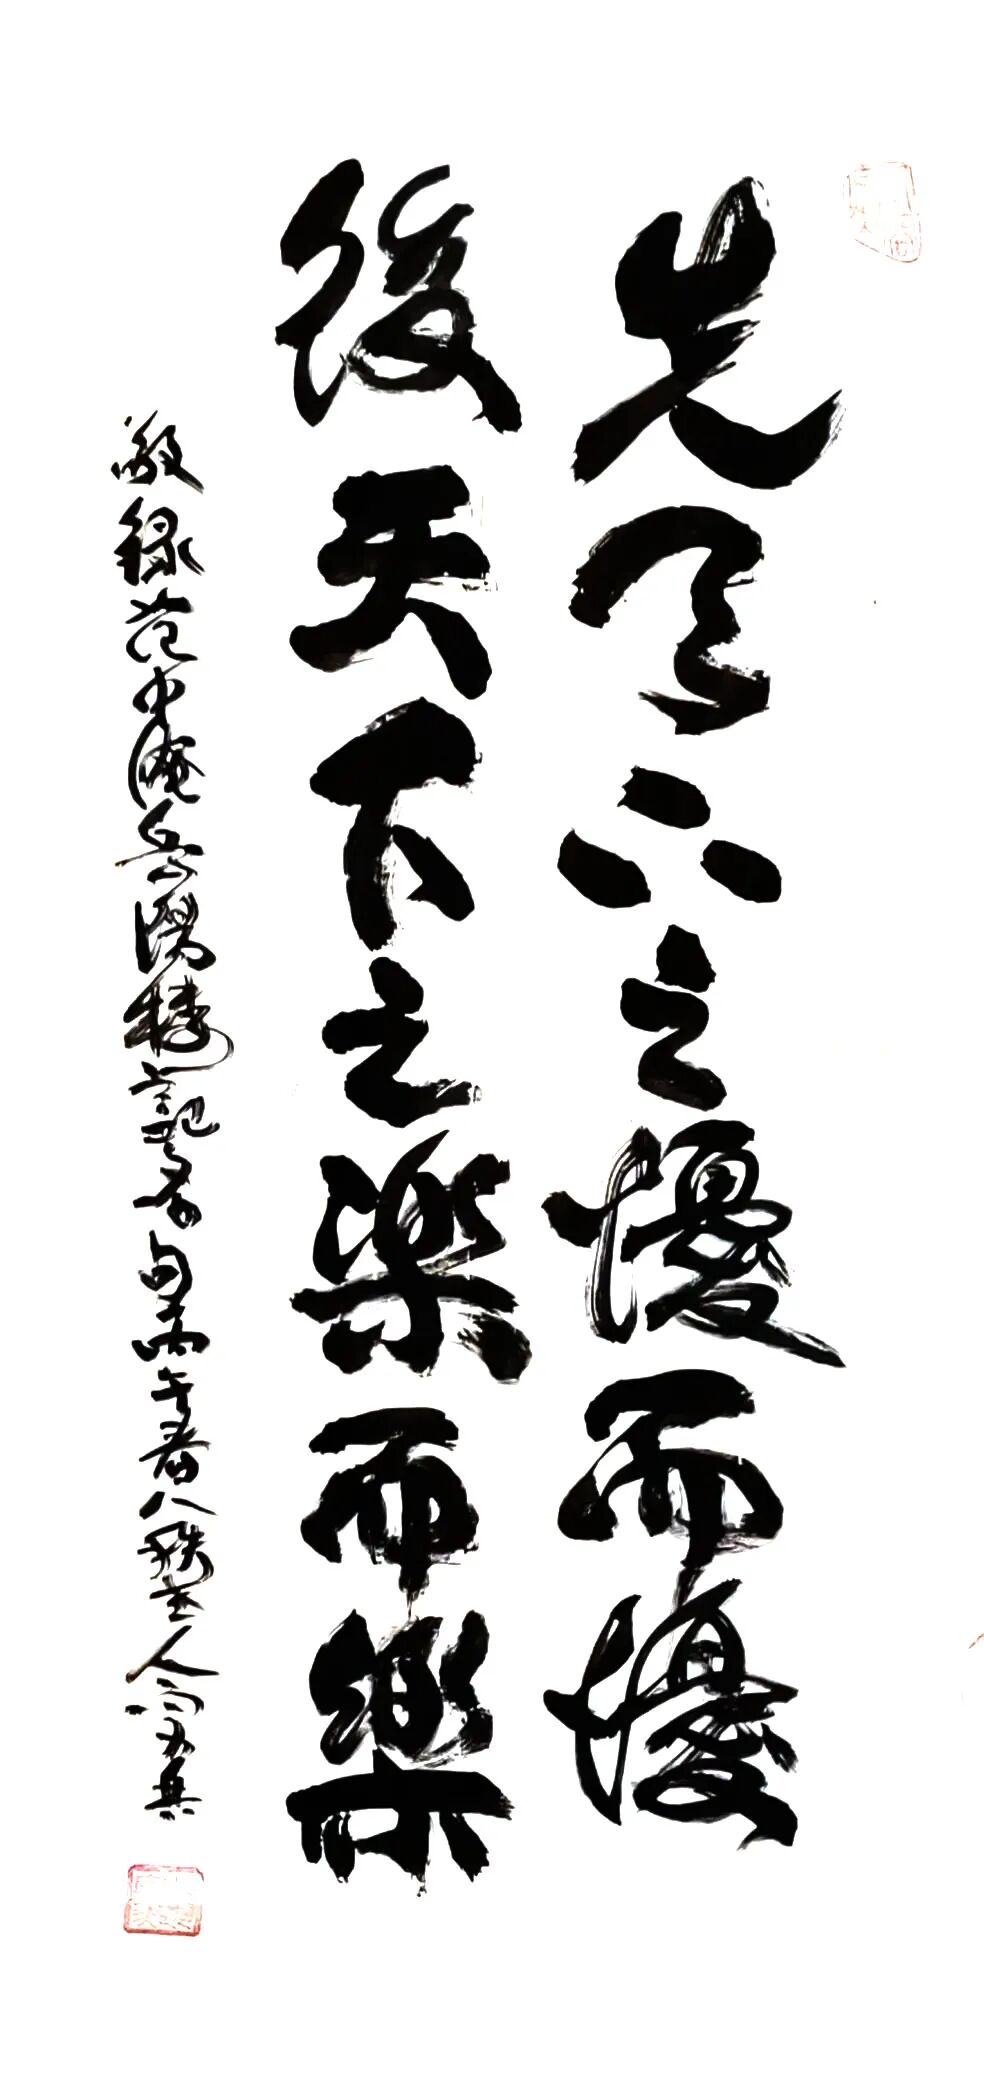 先天下之憂而憂
後天下之樂而樂
敬録范中淹岳陽楼記名句丙午春八秩老人